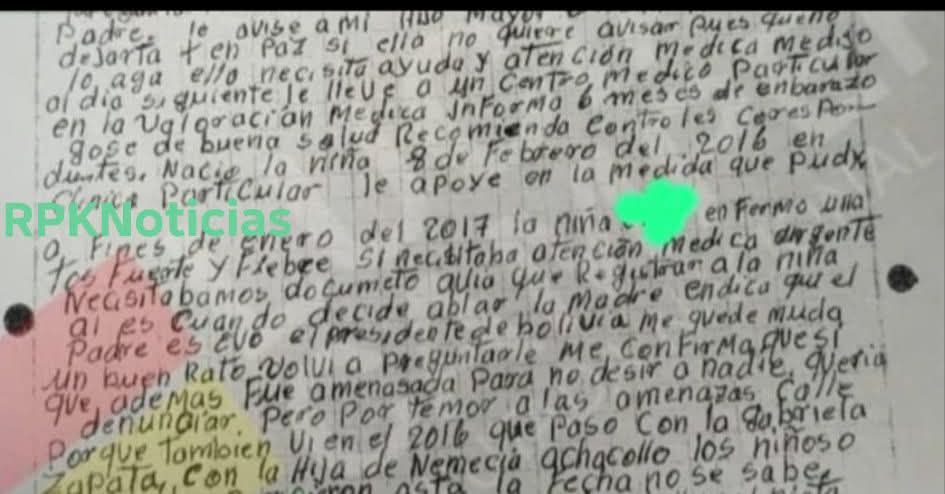 Padre, le avise a mi Hijo Mayor
dejarta t en Paz si ella no quiere avisar pues que no
lo aga ella necisita ayuda y atención medica medigo
al dia siguiente le lleve a un Centro medico Particular
en la Valoracian Medica Informa 6 meses de enbarazo
gose de buena salud Recomienda Controles CoresPon-
duntes. Nacio la niña 8 de Febrero del 2016 en
Clinica Particular le apoye en la medida que pudx
RPKNoticias
a Fines de enero del 2017 la niña enfermo una
Tos Fuerte y Fiebre Si necisitaba atención medica urgente
Necisitabamos documeto aqui que Registran a la niña
ai es Cuando decide ablar la Madre endica qu el
Padre es Evo el presidente de bolivia me quede muda
un buen Rato Volvi a Preguntarle Me ConfirMa que si
que, ademas Fue amenasada Para no desir a nadie, queria
denunciar Pero Por temor a las amenazas Calle
Porque Tambien Vi en el 2016 que Paso Con la gabriela
Zapata, Con la Hija de Nemecia achacollo los niñoso
asta la Fecha no se sabe